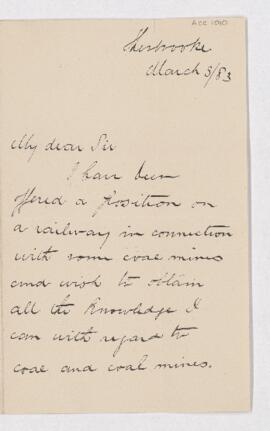 Acc 1010
Sherbrooke
March 3/83
My dear Sir
I have been
offered a position on
a railway in connection
with some coal mines
and wish to obtain
all the knowledge I
can with regard to
coal and coal mines.